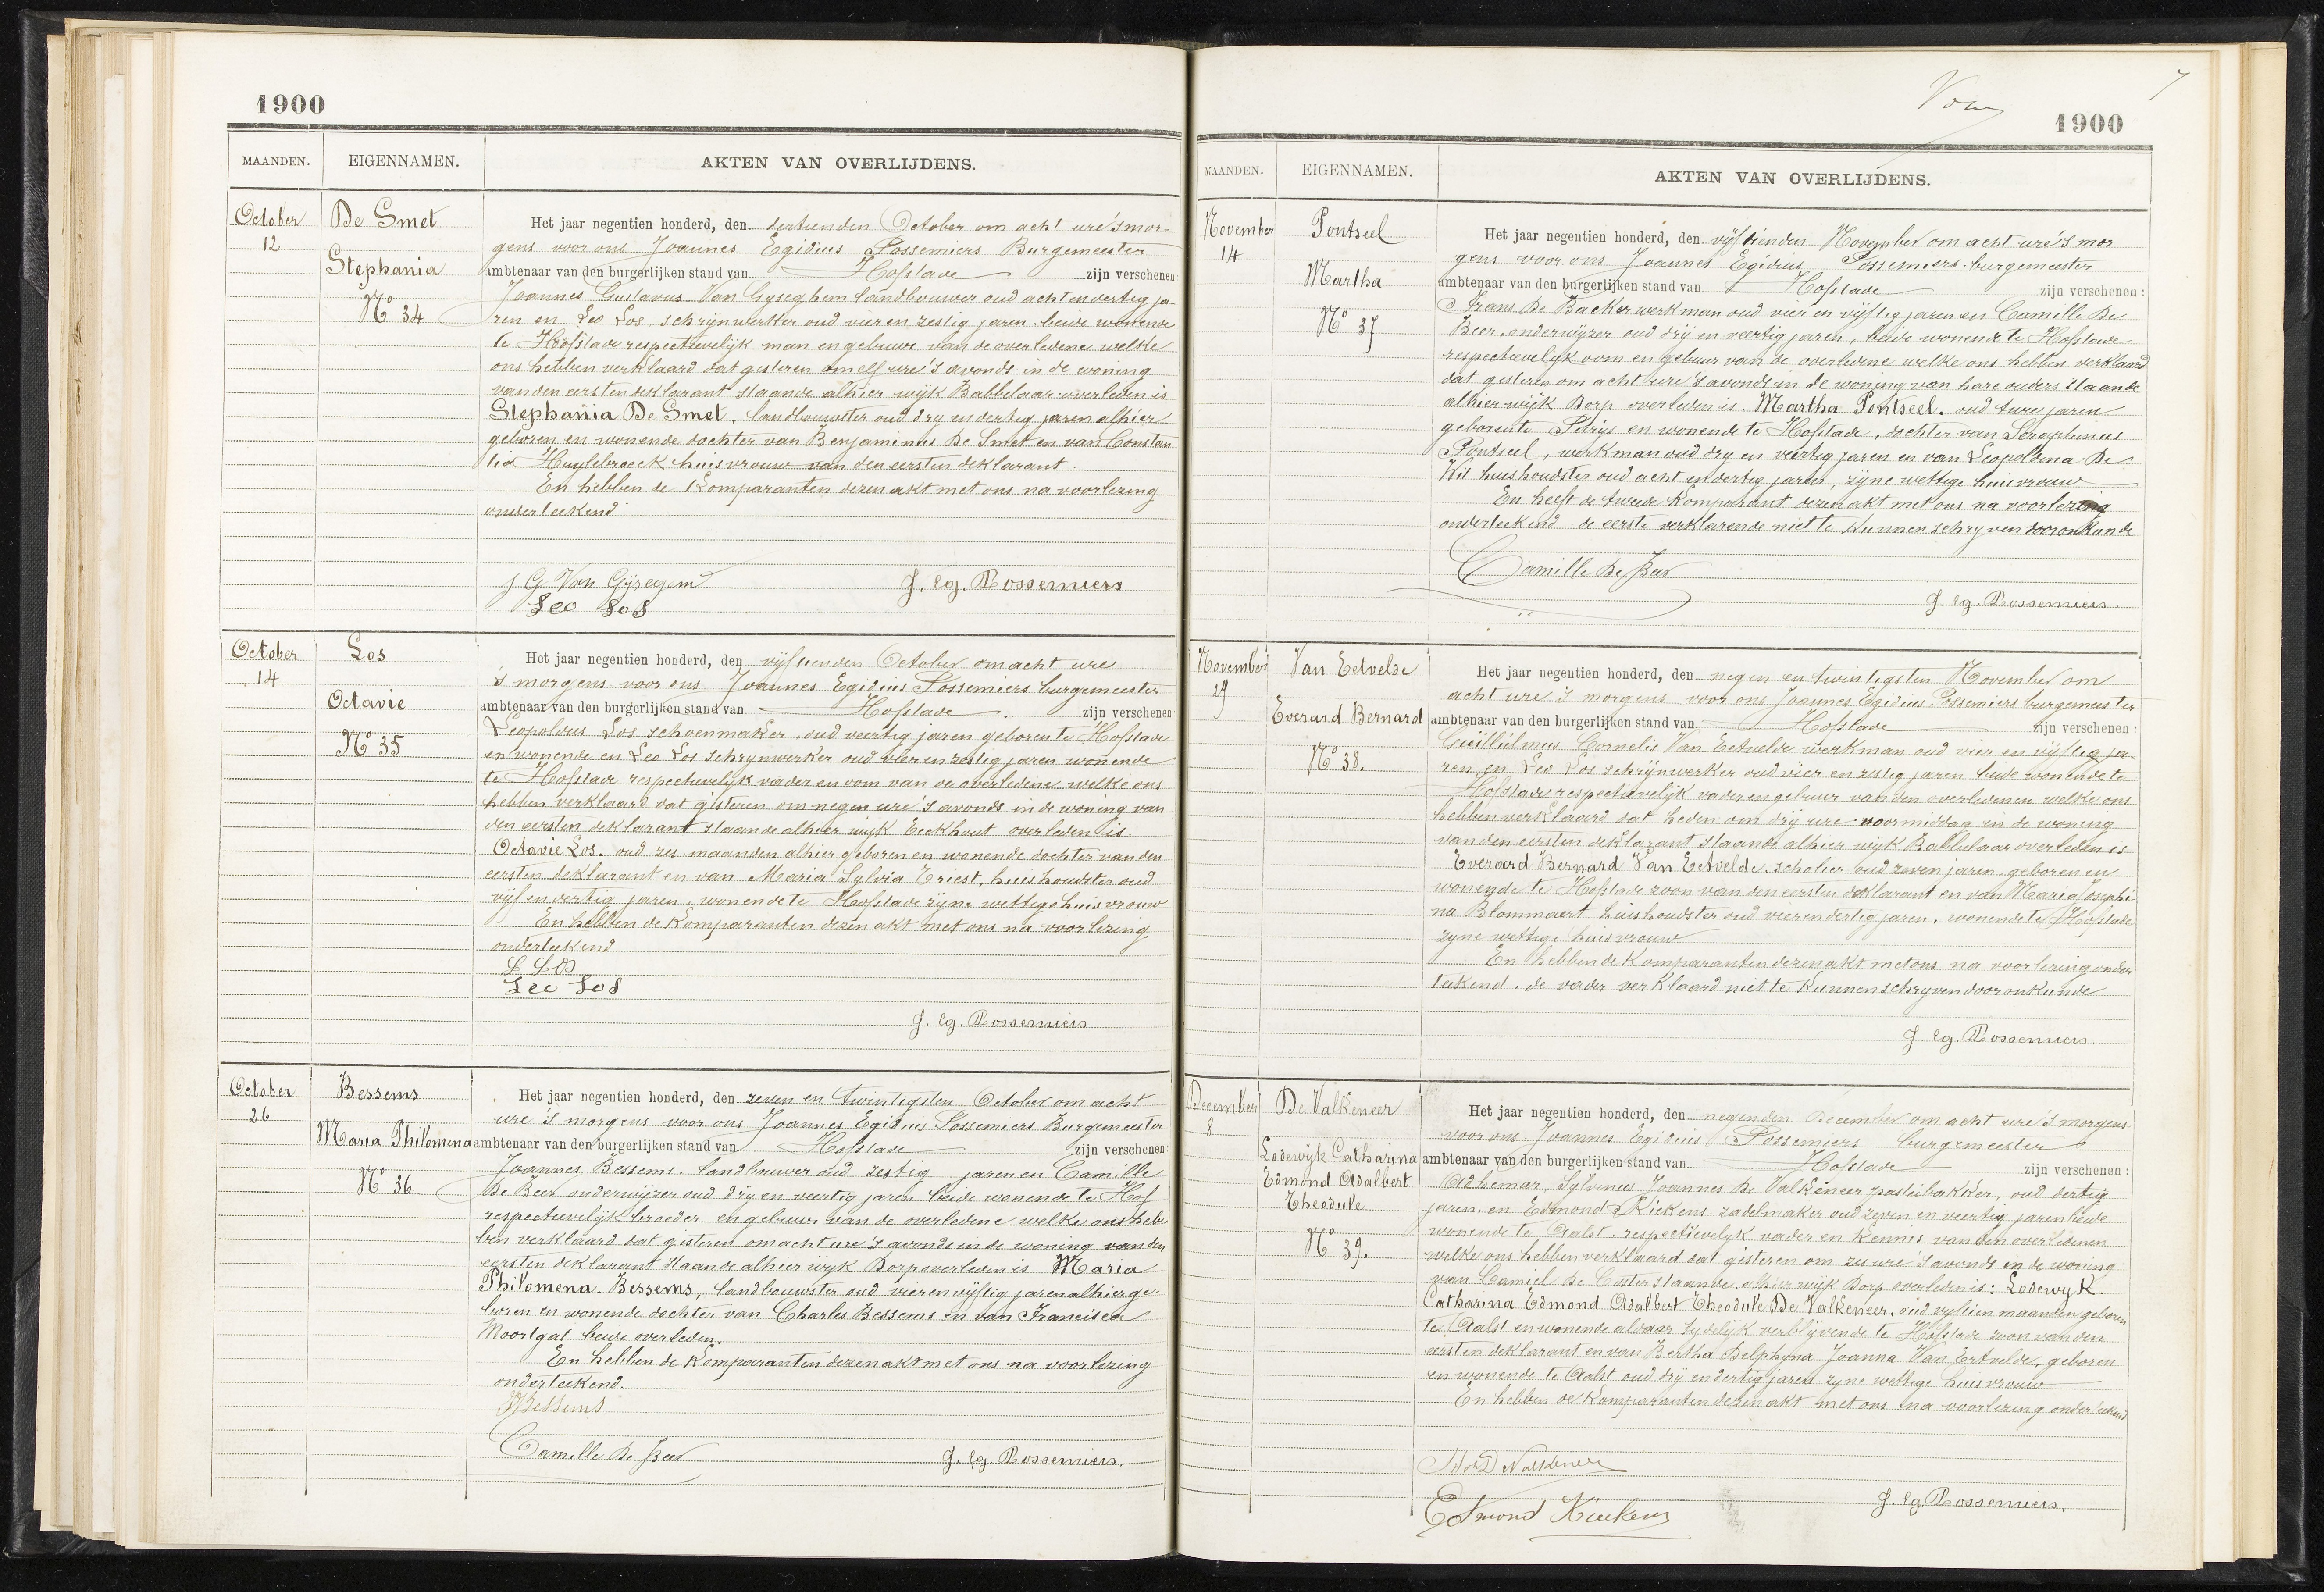 1900
MAANDEN.
EIGENNAMEN.
AKTEN VAN OVERLIJDENS.
October
12
De Smet
Stephania
No 34
Het jaar negentien honderd, den dertienden October om acht ure 's mor-
gens voor ons Joannes Egidius Possemiers Burgemeester
ambtenaar van den burgerlijken stand van Hofstade zijn verschenen
Joannes Gustavus Van Gyseghem landbouwer oud acht en veertig ja-
ren en Leo Los schrijnwerker oud vier en zestig jaren beide wonende
te Hofstade respectievelijk man en gebuur van de overledene welke
ons hebben verklaard dat gisteren om elf ure 's avonds in de woning
van den eersten deklarant staande alhier wijk Babbelaar overleden is
Stephania De Smet, landbouwster oud dry en dertig jaren alhier
geboren en wonende dochter van Benjaminus De Smet en van Constan
tia Huylebroeck huisvrouw van den eersten deklarant.
En hebben de Komparanten dezen akt met ons na voorlezing
onderteekend
J G Van Gijsegem
J. Eg. Possemiers
Leo Los
October
14
Los
Octavie
No 35
Het jaar negentien honderd, den vijftienden October om acht ure
's morgens voor ons Joannes Egidius Possemiers burgemeester
ambtenaar van den burgerlijken stand van Hofstade. zijn verschenen
Leopoldus Los schoenmaker, oud veertig jaren geboren te Hofstade
en wonende en Leo Los schrynwerker oud vier en zestig jaren wonende
te Hofstade respectievelijk vader en oom van de overledene welke ons
hebben verklaard dat gisteren om negen ure 's avonds in de woning van
den eersten deklarant staande alhier wijk Eeckhout overleden is.
Octavie Los. oud zes maanden alhier geboren en wonende dochter van den
eersten deklarant en van Maria Sylvia Triest, huishoudster oud
vijf en dertig jaren, wonende te Hofstade zijne wettige huisvrouw
En hebben de Komparanten dezen akt met ons na voorlezing
onderteekend
L Los
Leo Los
J. Eg. Possemiers
October
26
Bessems
Maria Philomena
No 36
Het jaar negentien honderd, den zeven en twintigsten October om acht
ure 's morgens voor ons Joannes Egidius Possemiers Burgemeester
ambtenaar van den burgerlijken stand van Hofstade zijn verschenen:
Joannes Bessems. landbouwer oud zestig jaren en Camille
De Beer onderwijzer oud drij en veertig jaren beide wonende te Hof
respectievelijk broeder en gebuur van de overledene welke ons heb-
ben verklaard dat gisteren om acht ure 's avonds in de woning van den
eersten deklarant staande alhier wyk Dorp overleden is Maria
Philomena. Bessems, landbouwster oud vier en vijftig jaren alhier ge-
boren en wonende dochter van Charles Bessems en van Francisca
Moortgat beide overleden.
En hebben de Komparanten dezen akt met ons na voorlezing
onderteekend.
JBessems
Camille De Beer
J. Eg. Possemiers.
7
1900
MAANDEN.
EIGENNAMEN.
AKTEN VAN OVERLIJDENS.
November
14
Pontseel
Martha
No 37
Het jaar negentien honderd, den vijftienden November om acht ure 's mor
gens voor ons Joannes Egidius Possemiers burgemeester
ambtenaar van den burgerlijken stand van Hofstade zijn verschenen:
Frans De Backer werkman oud vier en vijftig jaren en Camille De
Beer. onderwijzer oud drij en veertig jaren, beide wonende te Hofstade
respectievelyk oom en gebuur van de overledene welke ons hebben verklaard
dat gisteren om acht ure 's avonds in de woning van hare ouders staande
alhier wijk Dorp overleden is. Martha Pontseel. oud twee jaren
geboren te Parijs en wonende te Hofstade, dochter van Seraphinus
Pontseel, werkman oud dry en veertig jaren en van Leopoldina De
Wit huishoudster oud acht en dertig jaren, zijne wettige huisvrouw
En heeft de tweede Komparant dezen akt met ons na voorlezing
onderteekend de eerste verklarende niet te kunnen schryven door onkunde
Camille De Beer
J. Eg. Possemiers.
November
29
Van Eetvelde
Everard Bernard
No 38.
Het jaar negentien honderd, den negen en twintigsten November om
acht ure 's morgens voor ons Joannes Egidius Possemiers burgemeester
ambtenaar van den burgerlijken stand van Hofstade zijn verschenen:
Guillielmus Cornelis Van Eetvelde werkman oud vier en vijftig ja-
ren en Leo Los schrijnwerker oud vier en zestig jaren beide wonende te
Hofstade respectievelijk vader en gebuur van den overledenen welke ons
hebben verklaard dat heden om drij ure voormiddag in de woning
van den eersten deklarant staande alhier wijk Babbelaar overleden is
Everard Bernard Van Eetvelde, scholier oud zeven jaren geboren en
wonende te Hofstade zoon van den eersten deklarant en van Maria Josephi-
na Blommaert huishoudster oud vier en dertig jaren, wonende te Hofstade
zyne wettige huisvrouw
En hebben de Komparanten dezen akt met ons na voorlezing onder
teekend. de vader verklaard niet te kunnen schryven door onkunde
J. Eg. Possemiers.
December
8
De Valkeneer
Lodewyk Catharina
Edmond Adalbert
Theodule
No 39.
Het jaar negentien honderd, den negenden December om acht ure 's morgens
voor ons Joannes Egidius Possemiers burgemeester
ambtenaar van den burgerlijken stand van Hofstade zijn verschenen:
Adhemar, Sylvinus Joannes De Valkeneer pasteibakker, oud dertig
jaren, en Edmond Kiekens zadelmaker oud zeven en veertig jaren beide
wonende te Aalst, respectievelyk vader en kennis van den overledenen
welke ons hebben verklaard dat gisteren om zes ure 's avonds in de woning
van Camiel De Coster staande alhier wijk Dorp overleden is: Lodewyk.
Catharina Edmond Adalbert Theodule De Valkeneer, oud vyftien maanden geboren
te Aalst en wonende aldaar tydelijk verblijvende te Hofstade zoon van den
eersten deklarant en van Bertha Delphyna Joanna Van Ertvelde, geboren
en wonende te Aalst oud drij en dertig jaren zyne wettige huisvrouw
En hebben de Komparanten dezen akt met ons na voorlezing onderteekend
Edmond Kiekens
J. Eg. Possemiers.